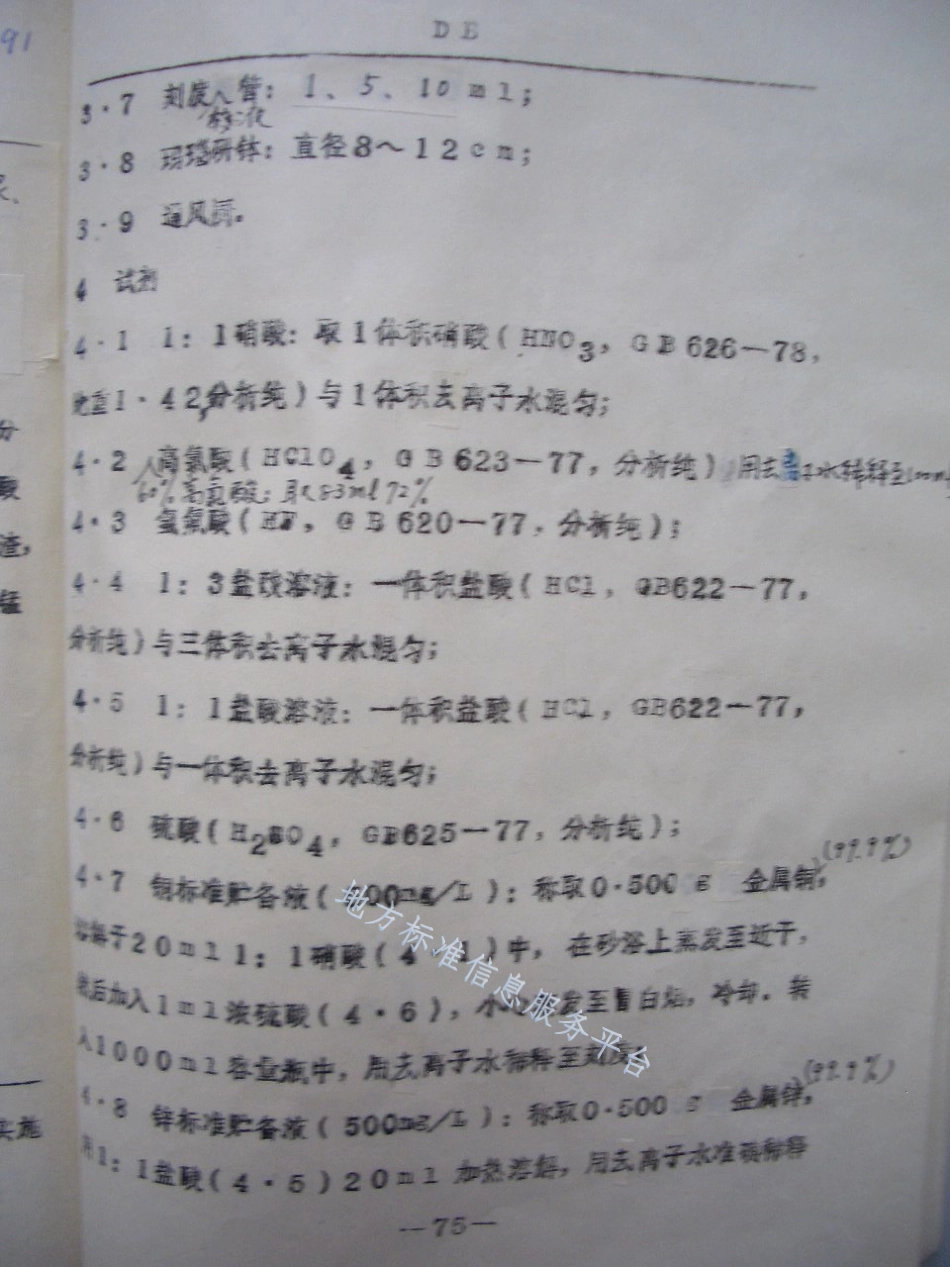 91
DB
3·7 刻度管:1、5、10ml;
移液
3·8 玛瑙研钵:直径8~12cm;
3·9 通风橱。
4 试剂
4·1 1:1硝酸:取1体积硝酸(HNO3,GB626—78,
比重1·42,分析纯)与1体积去离子水混匀;
4·2 高氯酸(HClO4,GB623—77,分析纯)用去离子水稀释至100ml
60%高氯酸:取83ml72%
4·3 氢氟酸(HF,GB620—77,分析纯);
4·4 1:3盐酸溶液:一体积盐酸(HCl,GB622—77,
分析纯)与三体积去离子水混匀;
4·5 1:1盐酸溶液:一体积盐酸(HCl,GB622—77,
分析纯)与一体积去离子水混匀;
4·6 硫酸(H2SO4,GB625—77,分析纯);
4·7 铜标准贮备液(500mg/L):称取0·500g 金属铜,(99.9%)
溶解于20ml1:1硝酸(4·1)中,在砂浴上蒸发至近干,
然后加入1ml浓硫酸(4·6),小心蒸发至冒白烟,冷却。转
入1000ml容量瓶中,用去离子水稀释至刻度;
4·8 锌标准贮备液(500mg/L):称取0·500g 金属锌,(99.9%)
用1:1盐酸(4·5)20ml加热溶解,用去离子水准确稀释
—75—
地方标准信息服务平台
分
酸
渣,
锰
实施